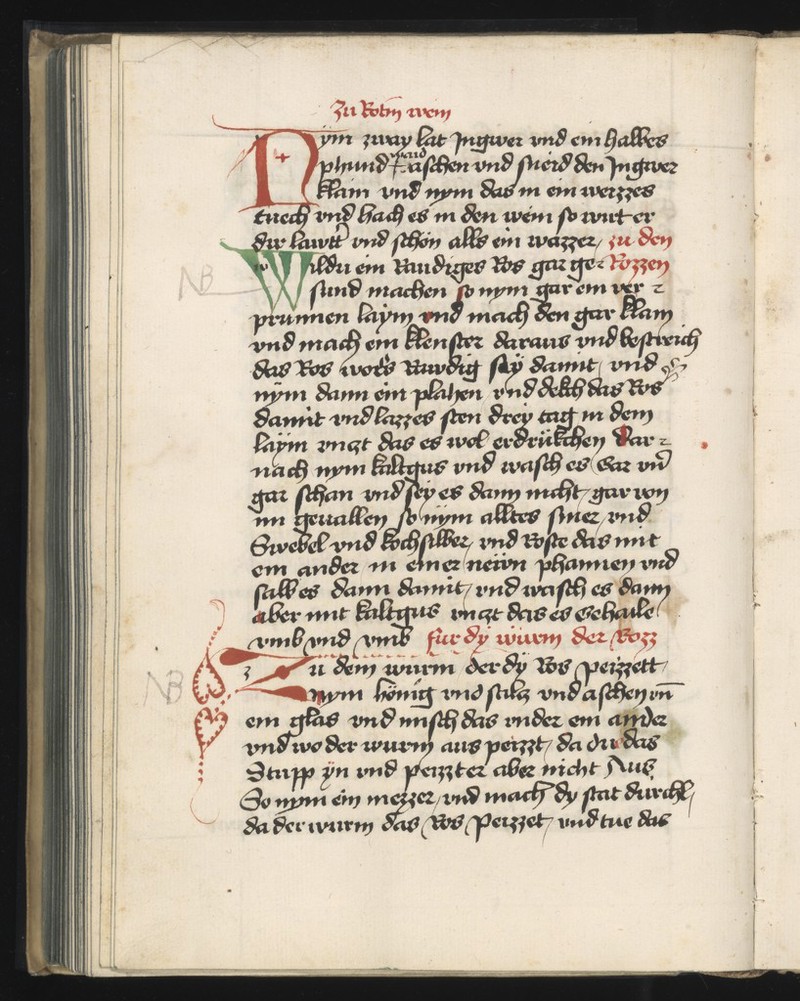 Zu Rotm wein
Nym zway lat Jngwer vnd ein halbes
phund waid aschen vnd sneid den Jngwer
klain vnd nym das in ein weizzes
tuech vnd hach es in den wein so wirt er
dir lawtt vnd schön alls ein wazzer, zu den
Wildu ein Raudiges Ros gar ge- Rozzen
NB
sund machen so nym gar ein ver-
prunnen laym vnd mach den gar klain
vnd mach ein klenster daraus vnd bestreich
das Ros wo es Rawdig sey damit, vnd
nym dann ein plahen vnd dekch das Ros
damit vnd lazzes sten drey tag in dem
laym vnczt das es wol erdrükchen Dar-
nach nym kaltgus vnd wasch es Gar vn
gar schan vnd sey es dann nicht, gar von
im geuallen so nym alltes smer, vnd
Swebel vnd kochsilber, vnd Roste das mit
ein ander in einer neẅn phannen vnd
salb es dann damit, vnd wasch es dann
aber mit kaltgus vnczt das es Gehaile
vmb vnd vmb für dy würm der Rozz
Zu dem wurm der dy Ros peizzett,
NB
nym hönig vnd salcz vnd aschen vn
ein glas vnd misch das vnder ein ander
vnd wo der wurm aus peizzt, da du das
Stupp yn vnd peizzt er aber nicht Aus
So nym ein mezzer, vnd mach dy stat durchl,
da der wurm das Ros Peizzet, vnd tue das